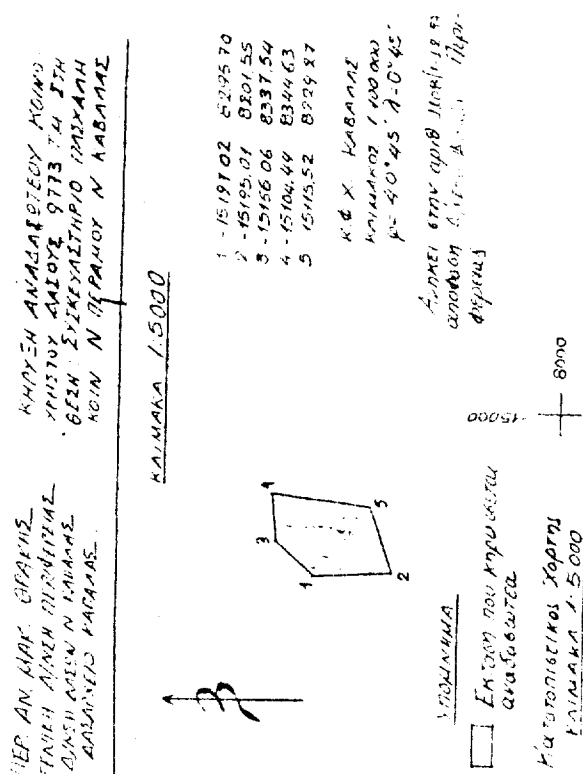 ΠΕΡ. ΑΝ. ΜΑΚ. ΘΡΑΚΗΣ
ΓΕΝΙΚΗ Δ/ΝΣΗ ΠΕΡΙΦΕΡΕΙΑΣ
Δ/ΝΣΗ ΔΑΣΩΝ Ν ΚΑΒΑΛΑΣ
ΔΑΣΑΡΧΕΙΟ ΚΑΒΑΛΑΣ
ΚΗΡΥΞΗ ΑΝΑΔΑΣΩΤΕΟΥ ΚΟΙΝΟ-
ΧΡΗΣΤΟΥ ΔΑΣΟΥΣ 9773 Τ.Μ ΣΤΗ
ΘΕΣΗ: ΣΥΣΚΕΥΑΣΤΗΡΙΟ ΠΑΣΧΑΛΗ
ΚΟΙΝ Ν ΠΕΡΑΜΟΥ Ν ΚΑΒΑΛΑΣ
ΚΛΙΜΑΚΑ 1:5000
1
2
3
4
5
1 -15197.02 8295.70
2 -15195.01 8201.55
3 -15156.06 8337.54
4 -15104.44 8344.63
5 -15115.52 8229.27
Κ Φ Χ. ΚΑΒΑΛΑΣ
ΚΛΙΜΑΚΟΣ 1:100000
φ= 40°45' λ=0°45'
Ανήκει στην αριθ
απόφαση Περι-
φέρειας
ΥΠΟΜΝΗΜΑ
Έκταση που κηρύσσεται
αναδασωτέα
Κατατοπιστικός Χάρτης
ΚΛΙΜΑΚΑ 1:5000
-15000
8000